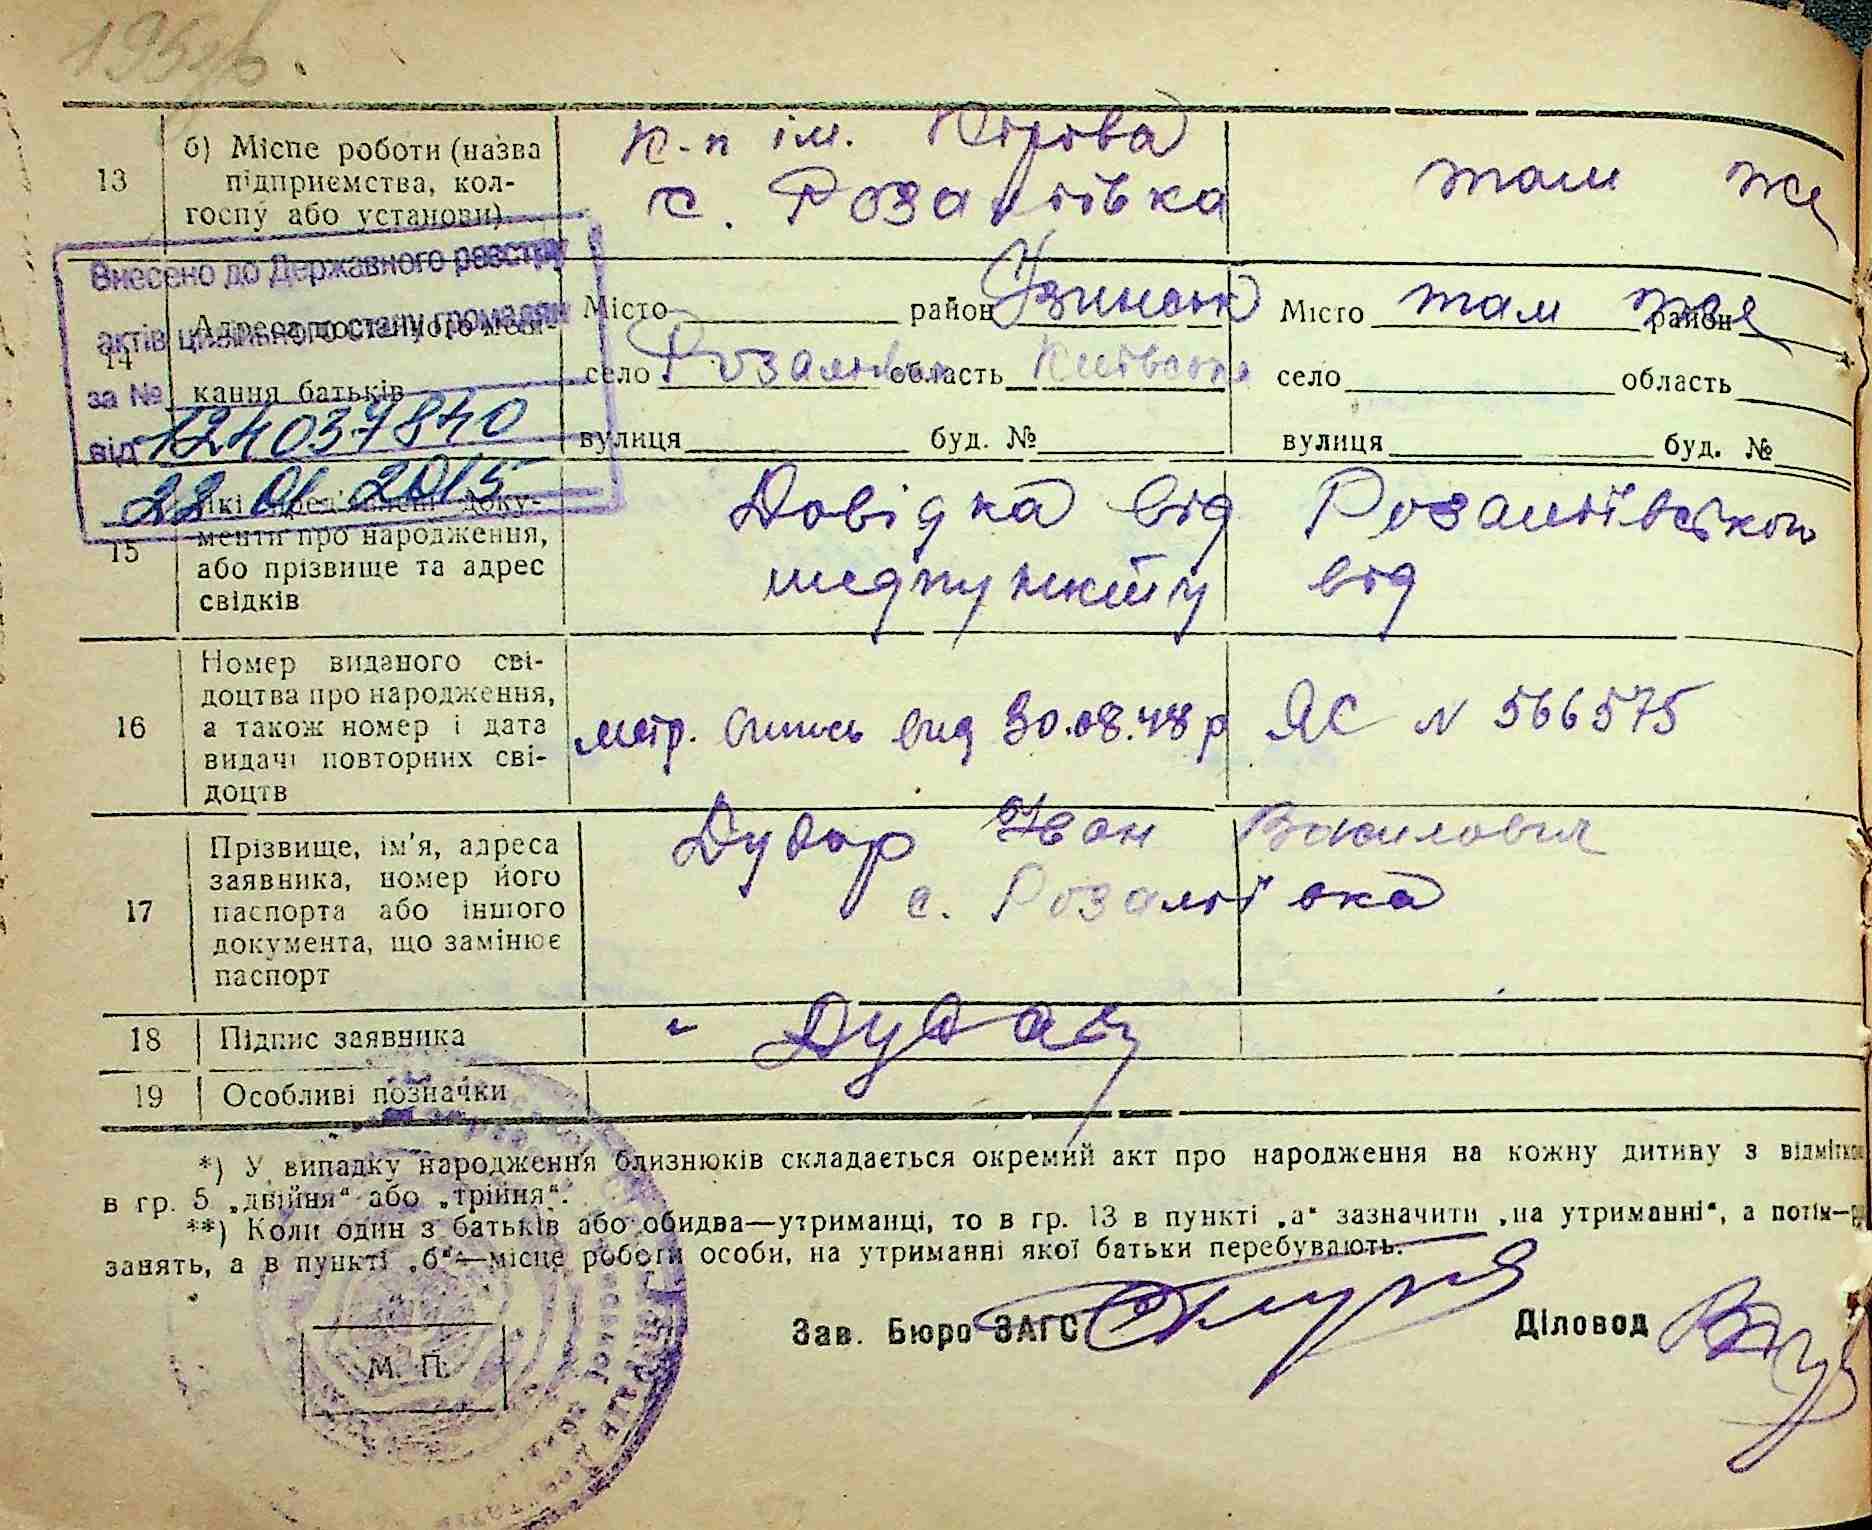 13
б) Місце роботи (назва
підприємства, кол-
госпу або установи)
К-п ім. Кірова
с. Розаліївка
там же
Внесено до Державного реєстру
актів цивільного стану громадян
за № 124037840
від 22 01 2015
14
Адреса постійного меш-
кання батьків
Місто район Узинськ
село Розаліївка область Київська
вулиця буд. №
Місто там же район
село область
вулиця буд. №
15
Які пред'явлені доку-
менти про народження,
або прізвище та адрес
свідків
Довідка від Розаліївського
медпункту від
16
Номер виданого сві-
доцтва про народження,
а також номер і дата
видачі повторних сві-
доцтв
метр. випись від 30.08.48 р ЯС N 566575
17
Прізвище, ім'я, адреса
заявника, номер його
паспорта або іншого
документа, що замінює
паспорт
Дудар Іван Василович
с. Розаліївка
18 Підпис заявника
Дудар
19 Особливі позначки
*) У випадку народження близнюків складається окремий акт про народження на кожну дитину з відміткою
в гр. 5 „двійня“ або „трійня“.
**) Коли один з батьків або обидва—утриманці, то в гр. 13 в пункті „а“ зазначити „на утриманні“, а потім—
занять, а в пункті „б“—місце роботи особи, на утриманні якої батьки перебувають.
Зав. Бюро ЗАГС
Діловод
М. П.